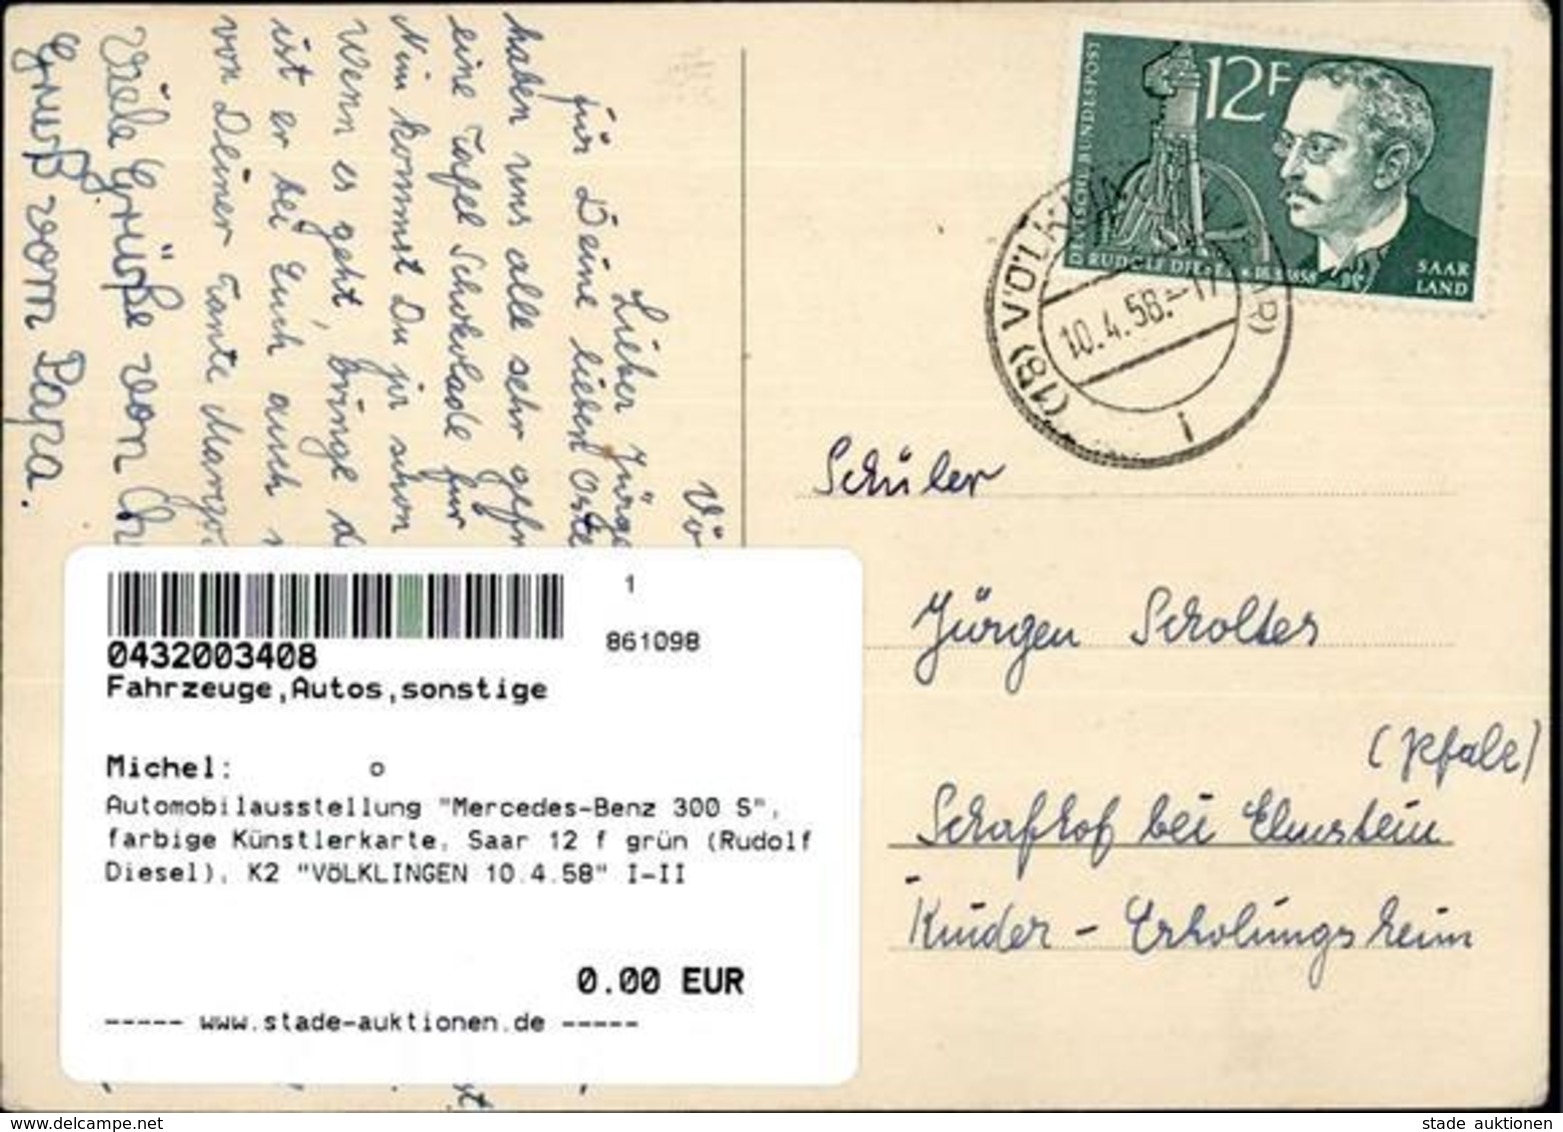 Vö
Lieber Jürge
für Deine lieben Oste
haben uns alle sehr gefr
eine Tafel Schokolade für
Nun kommst Du ja schon
Wenn es geht, bringe d
ist er bei Euch auch
von Deiner Tante Margo
Viele Grüße von
Gruß vom Papa.
12F
DEUTSCHE BUNDESPOST
RUDOLF DIESEL 18.3.1858
SAAR
LAND
(18) VÖLKLINGEN (SAAR)
10.4.58.-17
Schüler
Jürgen Scholtes
(Pfalz)
Schafhof bei Elmstein
Kinder-Erholungsheim
1
0432003408
861098
Fahrzeuge,Autos,sonstige
Michel: o
Automobilausstellung "Mercedes-Benz 300 S",
farbige Künstlerkarte, Saar 12 f grün (Rudolf
Diesel), K2 "VöLKLINGEN 10.4.58" I-II
0.00 EUR
----- www.stade-auktionen.de -----
www.delcampe.net
stade auktionen